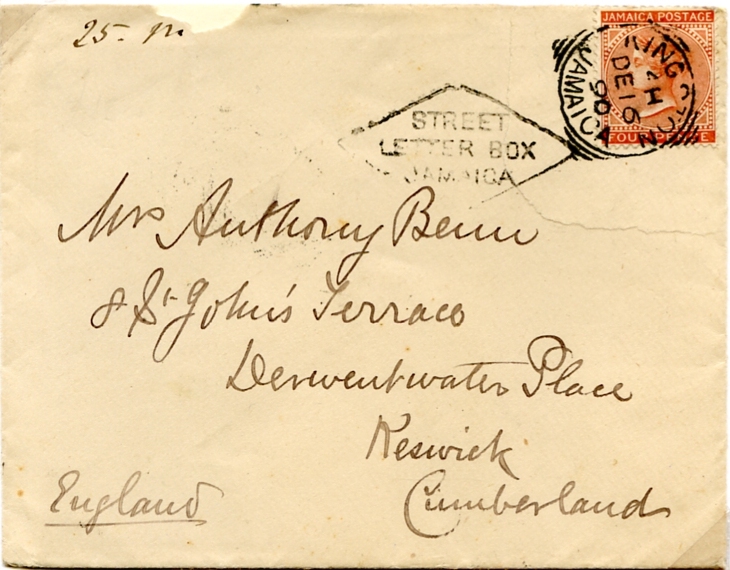 25.
JAMAICA POSTAGE
KINGSTON
H
DE 16
90
JAMAICA
FOUR PENCE
STREET
LETTER BOX
JAMAICA
Mrs Anthony Benn
8 St. John's Terrace
Derwentwater Place
Keswick
Cumberland
England